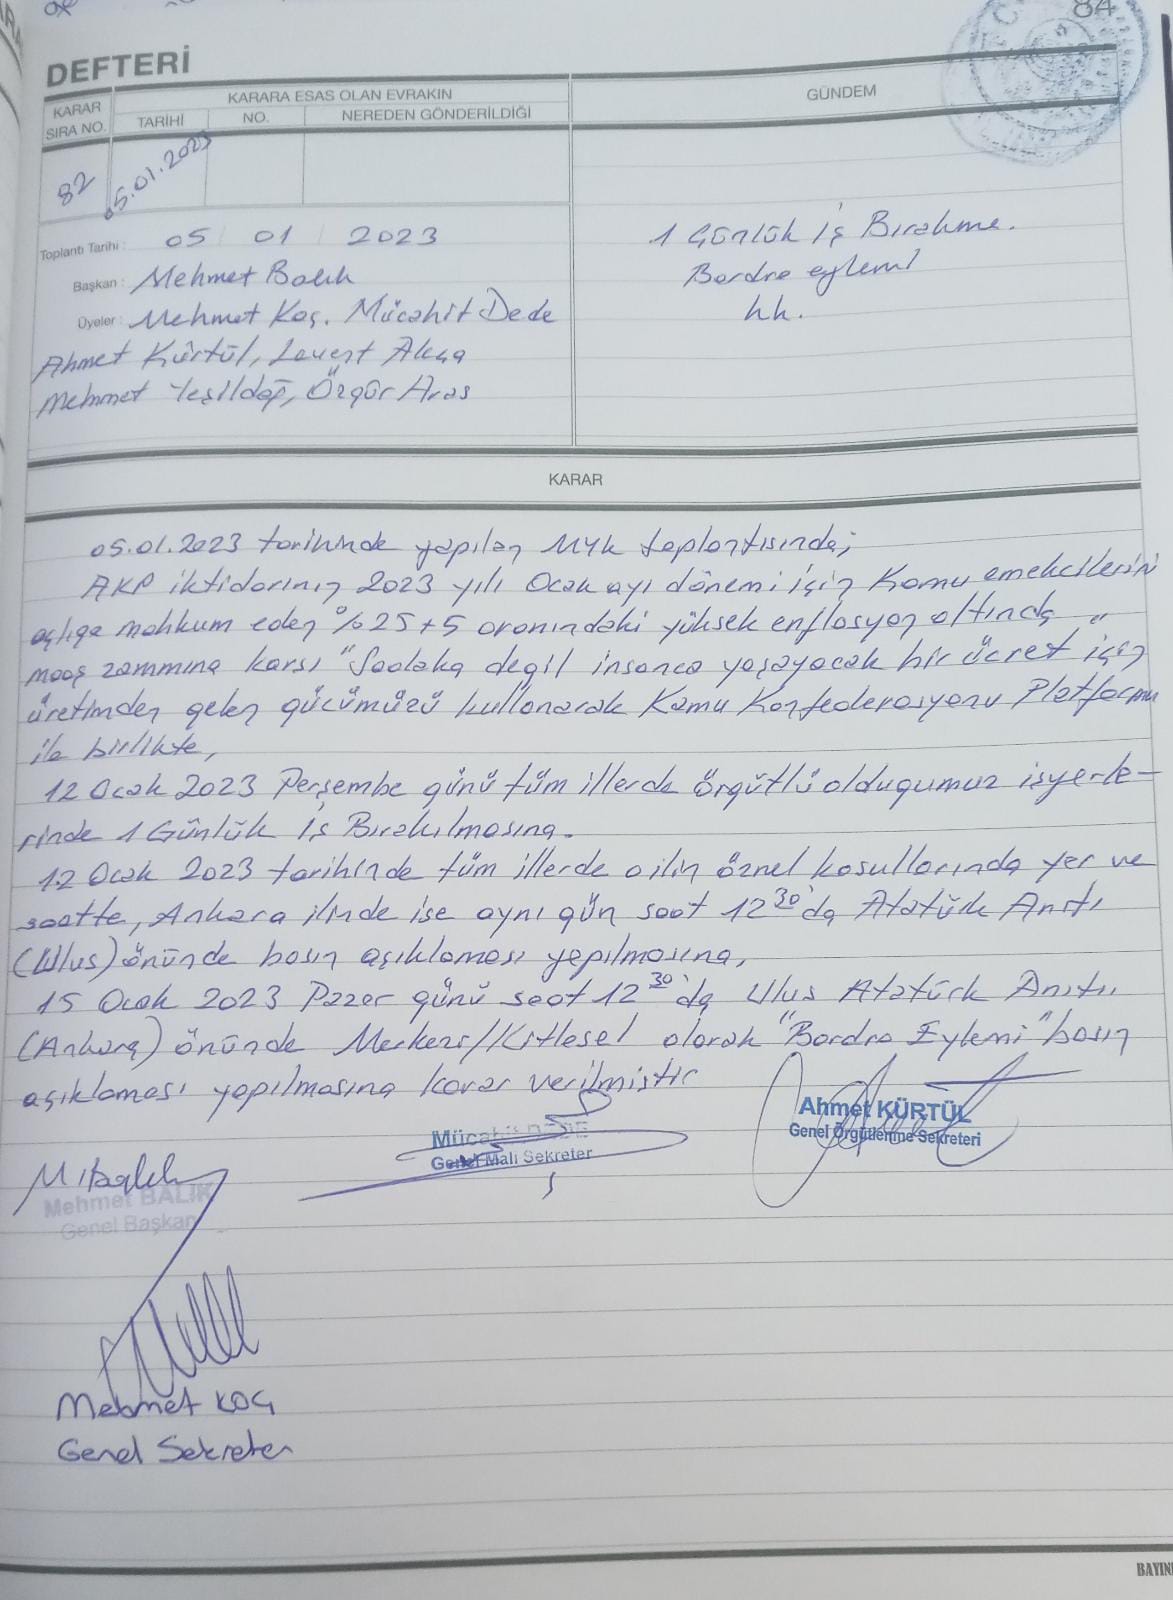 84
DEFTERİ
KARAR SIRA NO.
KARARA ESAS OLAN EVRAKIN
GÜNDEM
TARİHİ
NO.
NEREDEN GÖNDERİLDİĞİ
82
05.01.2023
Toplantı Tarihi : 05 01 2023
1 Günlük İş Bırakma.
Başkan : Mehmet Balık
Bordro eylemi
Üyeler : Mehmet Koç. Mücahit Dede
hk.
Ahmet Kürtül, Levent Akça
Mehmet Yeşildağ, Özgür Aras
KARAR
05.01.2023 tarihinde yapılan MYK toplantısında;
AKP iktidarının 2023 yılı Ocak ayı dönemi için Kamu emekcilerini
açlığa mahkum eden %25+5 oranındaki yüksek enflasyon altında
maaş zammına karsı "Sadaka degil insanca yaşayacak bir ücret" için
üretimden gelen gücümüzü kullanarak Kamu Konfederasyonu Platformu
ile birlikte,
12 Ocak 2023 Perşembe günü tüm illerde örgütlü oldugumuz işyerle-
rinde 1 Günlük İş Bırakılmasına.
12 Ocak 2023 tarihinde tüm illerde o ilin öznel kosullarında yer ve
saatte, Ankara ilinde ise aynı gün saat 12 30'da Atatürk Anıtı
(Ulus) önünde basın açıklaması yapılmasına,
15 Ocak 2023 Pazar günü saat 12 30'da Ulus Atatürk Anıtı
(Ankara) önünde Merkezi/Kitlesel olarak "Bordro Eylemi" basın
açıklaması yapılmasına karar verilmistir
Ahmet KÜRTÜL
Genel Örgütlenme Sekreteri
Mücahit DEDE
Genel Mali Sekreter
M Balık
Mehmet BALIK
Genel Başkan
Mehmet KOÇ
Genel Sekreter